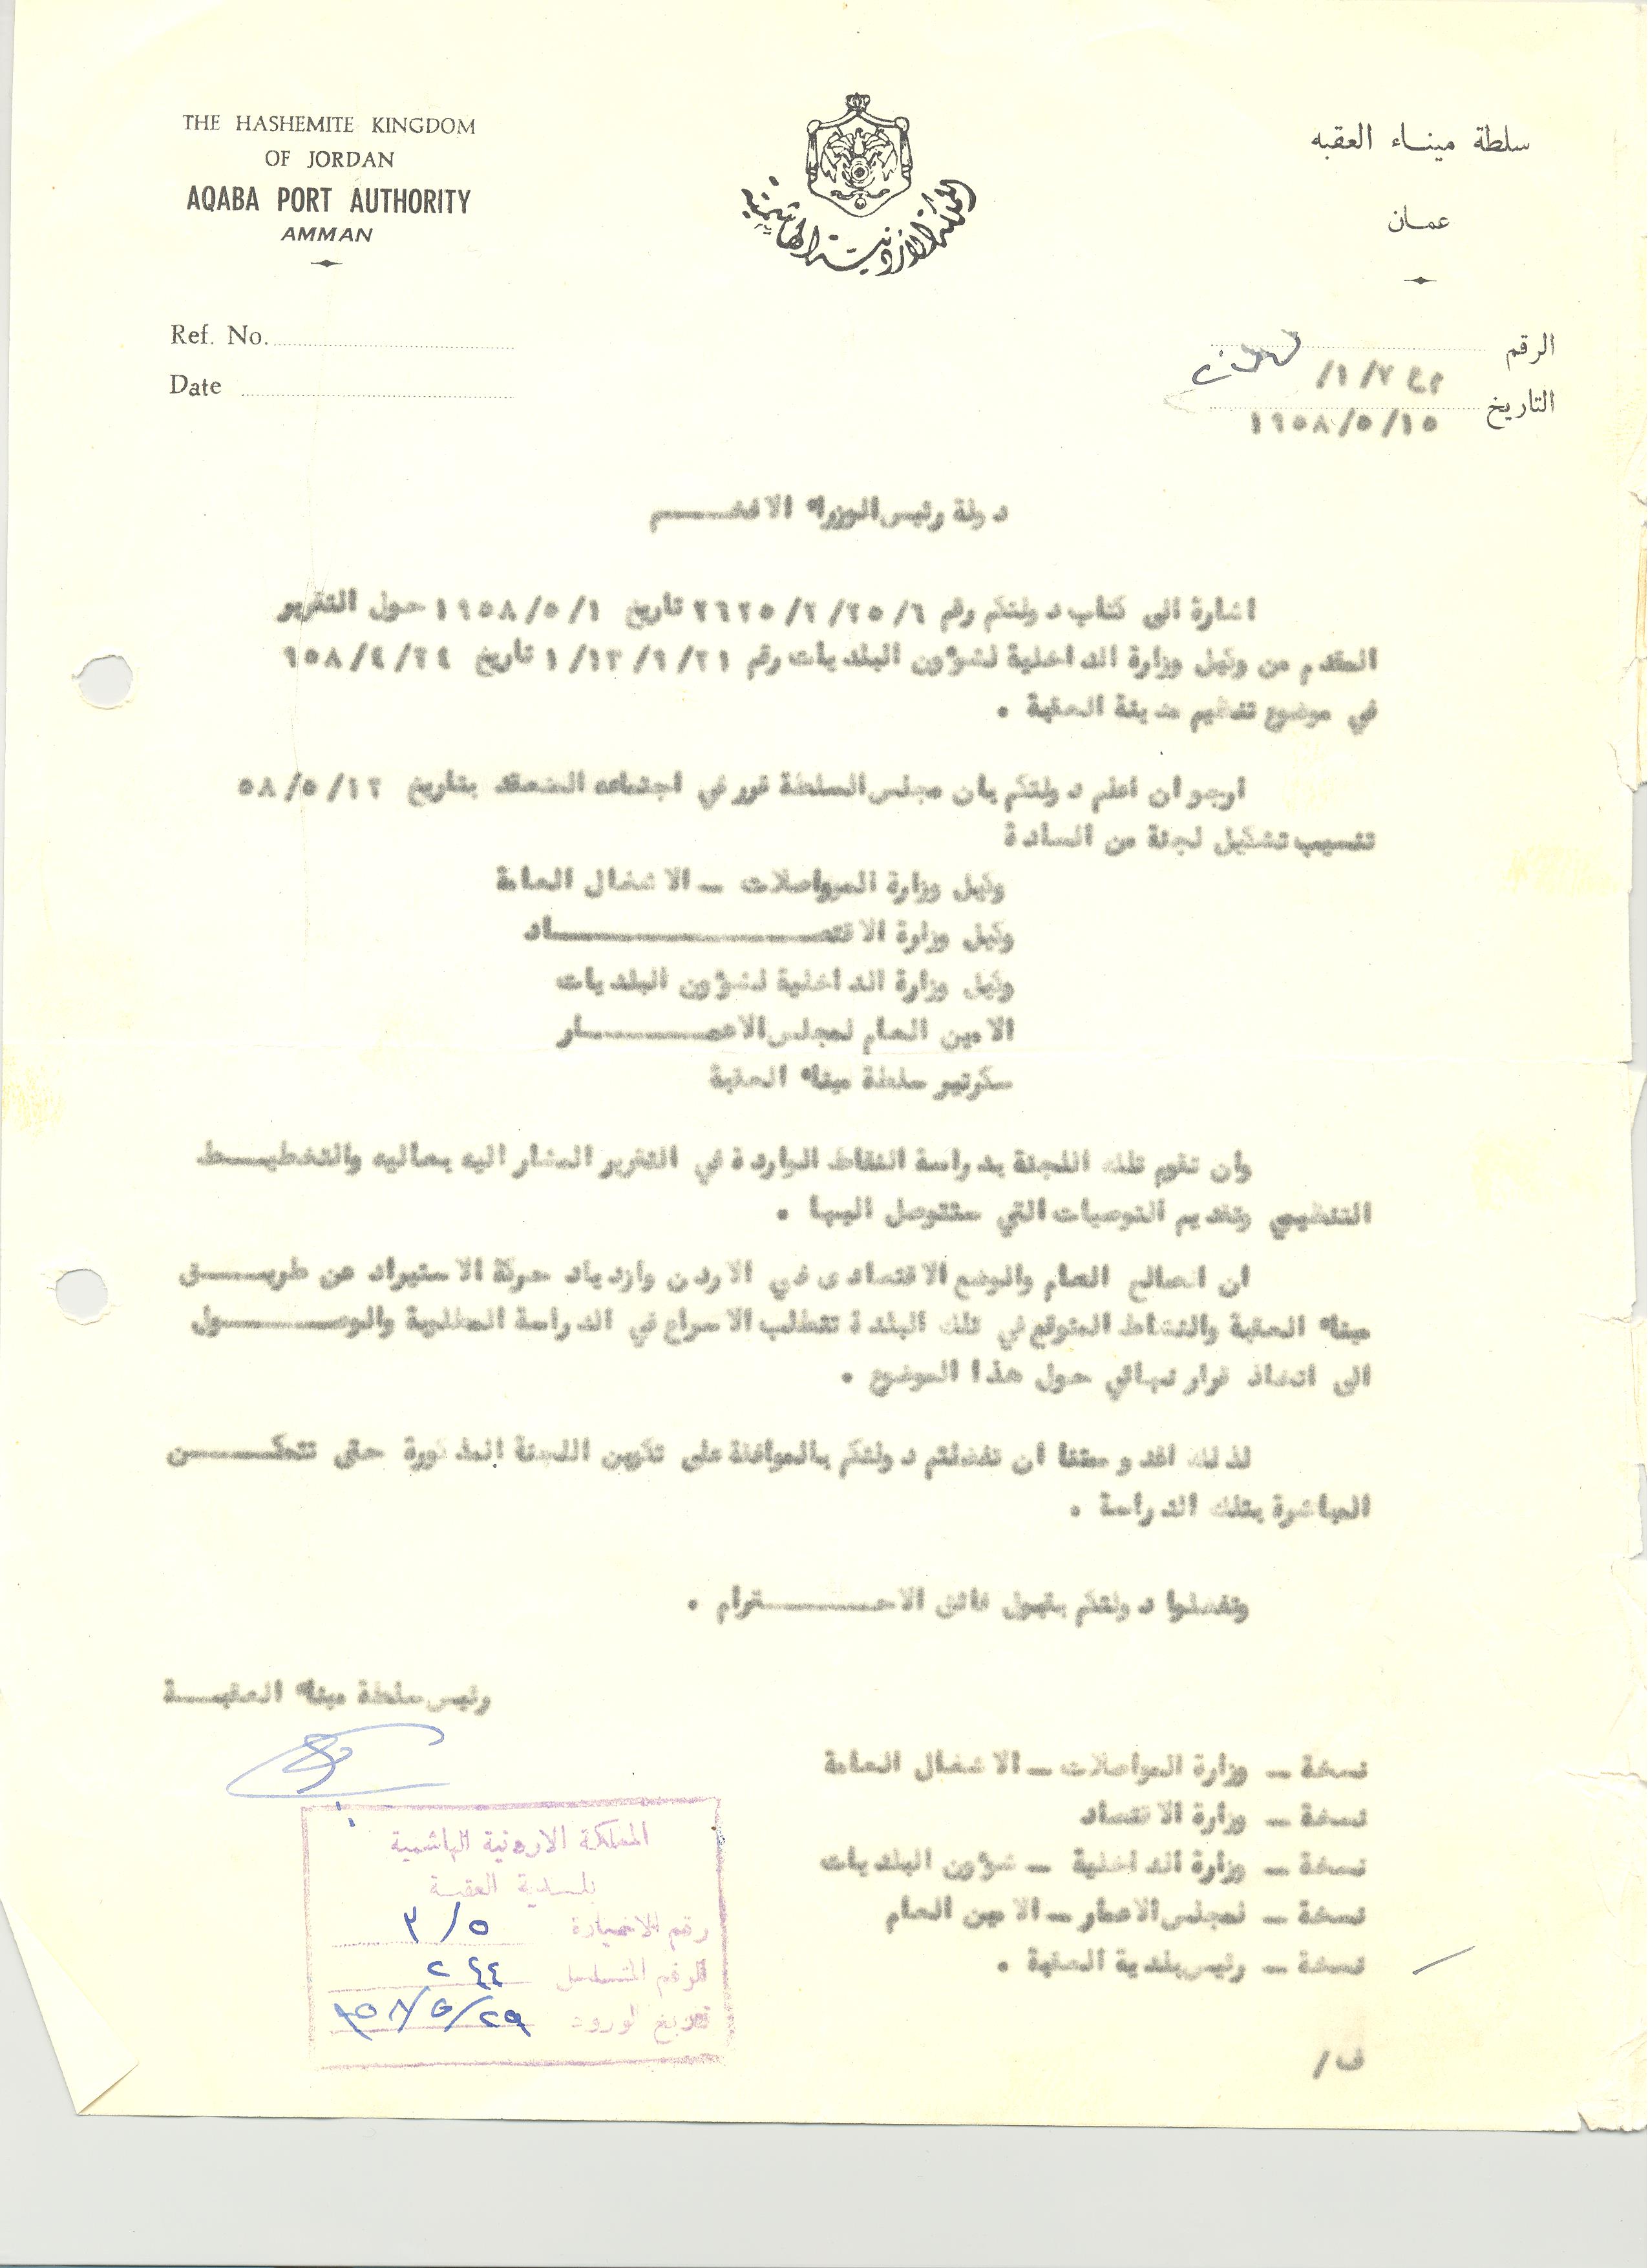 THE HASHEMITE KINGDOM
OF JORDAN
AQABA PORT AUTHORITY
AMMAN
المملكة الاردنية الهاشمية
سلطة ميناء العقبه
عمان
Ref. No.
Date
الرقم
م ع ١/٧/
التاريخ
١٩٥٨/٥/١٥
دولة رئيس الوزراء الافخم
اشارة الى كتاب دولتكم رقم ٢٦٢٥/٢/٢٥/٦ تاريخ ١٩٥٨/٥/١ حول التقرير
المقدم من وكيل وزارة الداخلية لشؤون البلديات رقم ١/١٣/٦/٢١ تاريخ ٩٥٨/٤/٢٤
في موضوع تنظيم مدينة العقبة .
ارجو ان اعلم دولتكم بان مجلس السلطة قرر في اجتماعه المنعقد بتاريخ ٥٨/٥/١٢
تنسيب تشكيل لجنة من السادة
وكيل وزارة المواصلات ــ الاشغال العامة
وكيل وزارة الاقتصاد
وكيل وزارة الداخلية لشؤون البلديات
الامين العام لمجلس الاعمار
سكرتير سلطة ميناء العقبة
وان تقوم تلك اللجنة بدراسة النقاط الواردة في التقرير المشار اليه بعاليه والتخطيط
التنظيمي وتقديم التوصيات التي ستتوصل اليها .
ان الصالح العام والوضع الاقتصادى في الاردن وازدياد حركة الاستيراد عن طريق
ميناء العقبة والنشاط المتوقع في تلك البلدة تتطلب الاسراع في الدراسة المطلوبة والوصول
الى اتخاذ قرار نهائي حول هذا الموضوع .
لذلك اغدو ممتنا ان تفضلتم دولتكم بالموافقة على تكوين اللجنة المذكورة حتى تتمكن
المباشرة بتلك الدراسة .
وتفضلوا دولتكم بقبول فائق الاحترام .
رئيس سلطة ميناء العقبة
نسخة ــ وزارة المواصلات ــ الاشغال العامة
نسخة ــ وزارة الاقتصاد
نسخة ــ وزارة الداخلية ــ شؤون البلديات
نسخة ــ لمجلس الاعمار ــ الامين العام
نسخة ــ رئيس بلدية العقبة .
ف/
المملكة الاردنية الهاشمية
بلدية العقبة
رقم الاضبارة ٣/٥
الرقم المتسلسل ٢٤٤
تاريخ الورود ٩٥٨/٥/٢٩